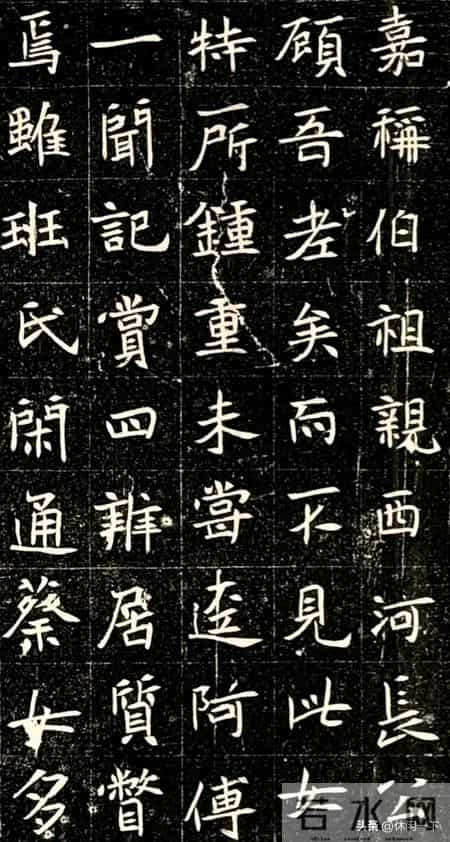 嘉稱伯祖親西河長公
顧吾老矣而不見此女
特所鍾重未嘗阿傅
一聞記賞四辨居質瞥
焉雖班氏閑通蔡女多
若水网
头条 @休闲一下